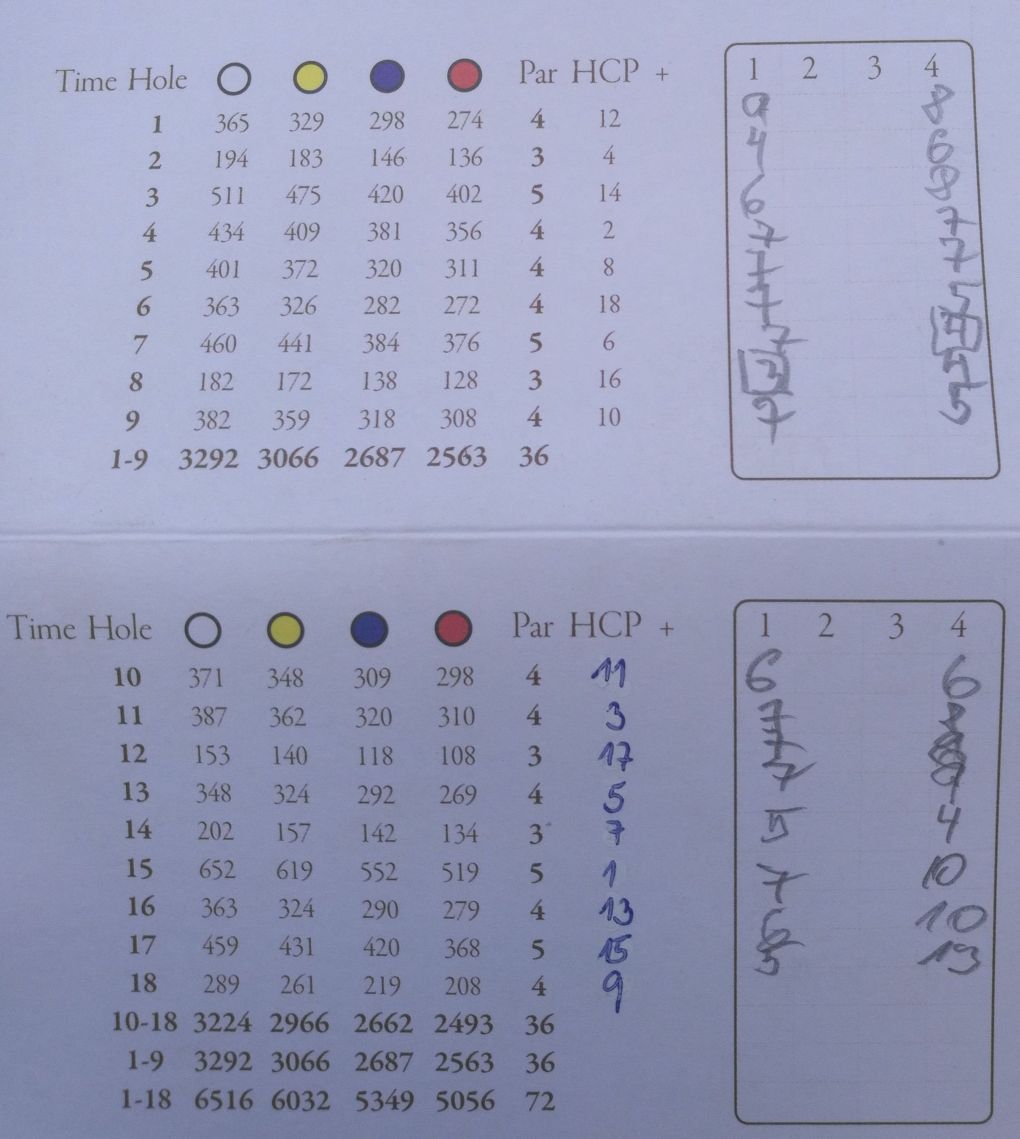 Time Hole Par HCP + 1 2 3 4
1 365 329 298 274 4 12 8
2 194 183 146 136 3 4 4 6
3 511 475 420 402 5 14
4 434 409 381 356 4 2 6 7
5 401 372 320 311 4 8 7 7
6 363 326 282 272 4 18
7 460 441 384 376 5 6 7
8 182 172 138 128 3 16 5
9 382 359 318 308 4 10
1-9 3292 3066 2687 2563 36
Time Hole Par HCP + 1 2 3 4
10 371 348 309 298 4 11 6 6
11 387 362 320 310 4 3
12 153 140 118 108 3 17
13 348 324 292 269 4 5
14 202 157 142 134 3 7 5 4
15 652 619 552 519 5 1 7 10
16 363 324 290 279 4 13 6 10
17 459 431 420 368 5 15 5 13
18 289 261 219 208 4 9
10-18 3224 2966 2662 2493 36
1-9 3292 3066 2687 2563 36
1-18 6516 6032 5349 5056 72